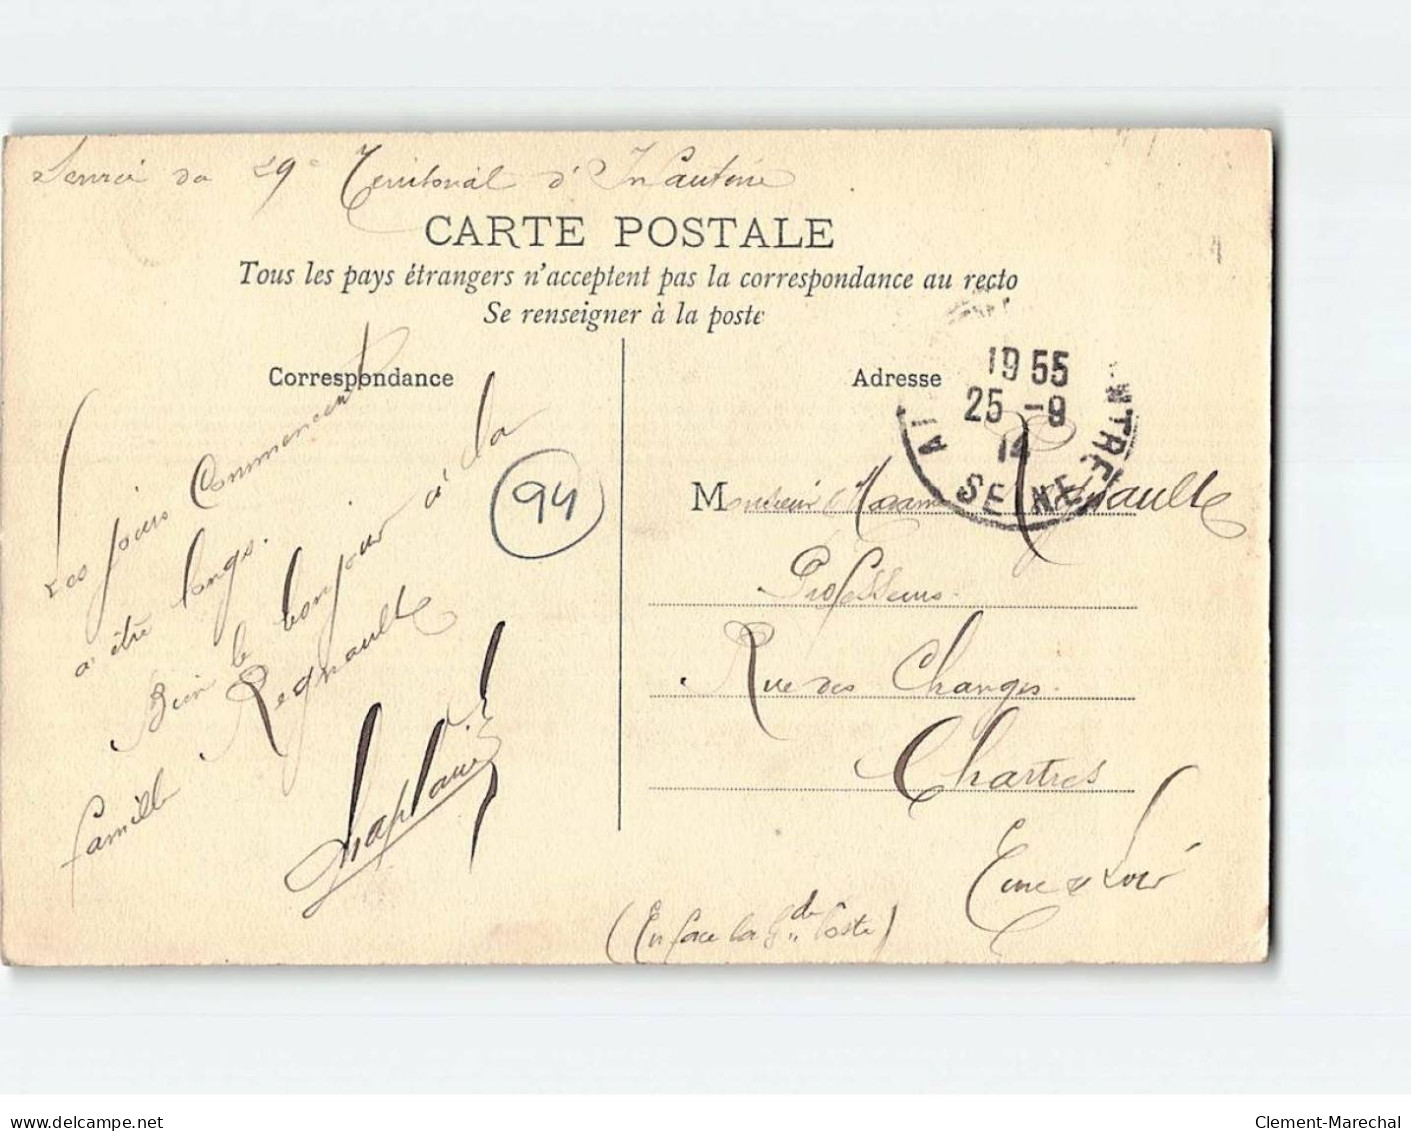 Service du 29e Territorial d'Infanterie
CARTE POSTALE
Tous les pays étrangers n'acceptent pas la correspondance au recto
Se renseigner à la poste
Correspondance
Adresse
19 55
25 -9
14
SEINE
94
Les jours Commencent
a être longs.
Bien le bonjour à la
famille Regnault
Chaplain
Monsieur & Madame Regnault
Professeurs
Rue des Changes.
Chartres
Eure & Loir
(En face la Gde Poste)
www.delcampe.net
Clement-Marechal